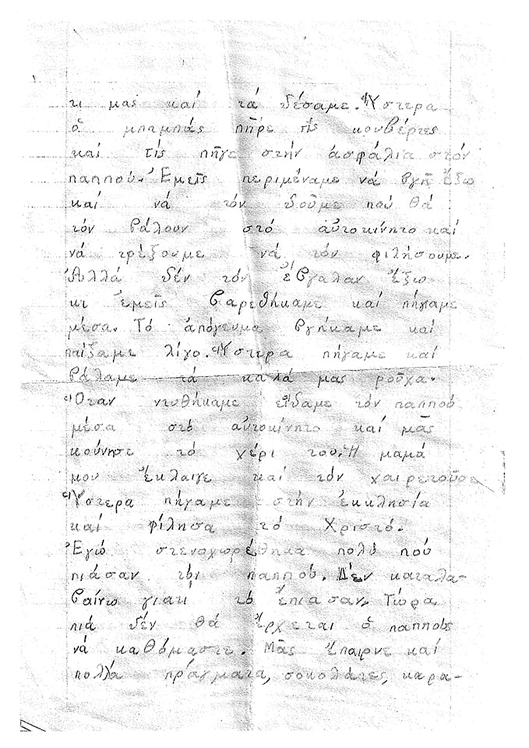 τι μας καί τά δέσαμε. Ὕστερα
ὁ μπαμπάς πῆρε τίς κουβέρτες
καί τίς πῆγε στήν ἀσφάλια στόν
παππού. Ἐμεῖς περιμέναμε νά βγῆ ἔξω
καί νά τόν δοῦμε πού θά
τόν βάλουν στό αὐτοκίνητο καί
νά τρέξουμε νά τόν φιλήσουμε.
Ἀλλά δέν τόν ἔβγαλαν ἔξω
κι ἐμεῖς βαρεθήκαμε καί πήγαμε
μέσα. Τό ἀπόγευμα βγήκαμε καί
παίξαμε λίγο. Ὕστερα πήγαμε καί
βάλαμε τά καλά μας ροῦχα.
Ὅταν ντυθήκαμε εἴδαμε τόν παππού
μέσα στό αὐτοκίνητο καί μᾶς
κούνησε τό χέρι του. Ἡ μαμά
μου ἔκλαιγε καί τόν χαιρετοῦσε
Ὕστερα πήγαμε στήν ἐκκλησία
καί φίλησα τό Χριστό.
Ἐγώ στενοχωρέθηκα πολύ πού
πιάσαν τόν παππού. Δέν καταλα-
βαίνω γιατί τό ἔπιασαν. Τώρα
πιά δέν θά ἔρχεται ὁ παππούς
νά καθόμαστε. Μᾶς ἔπαιρνε καί
πολλά πράγματα, σοκολάτες, καρα-